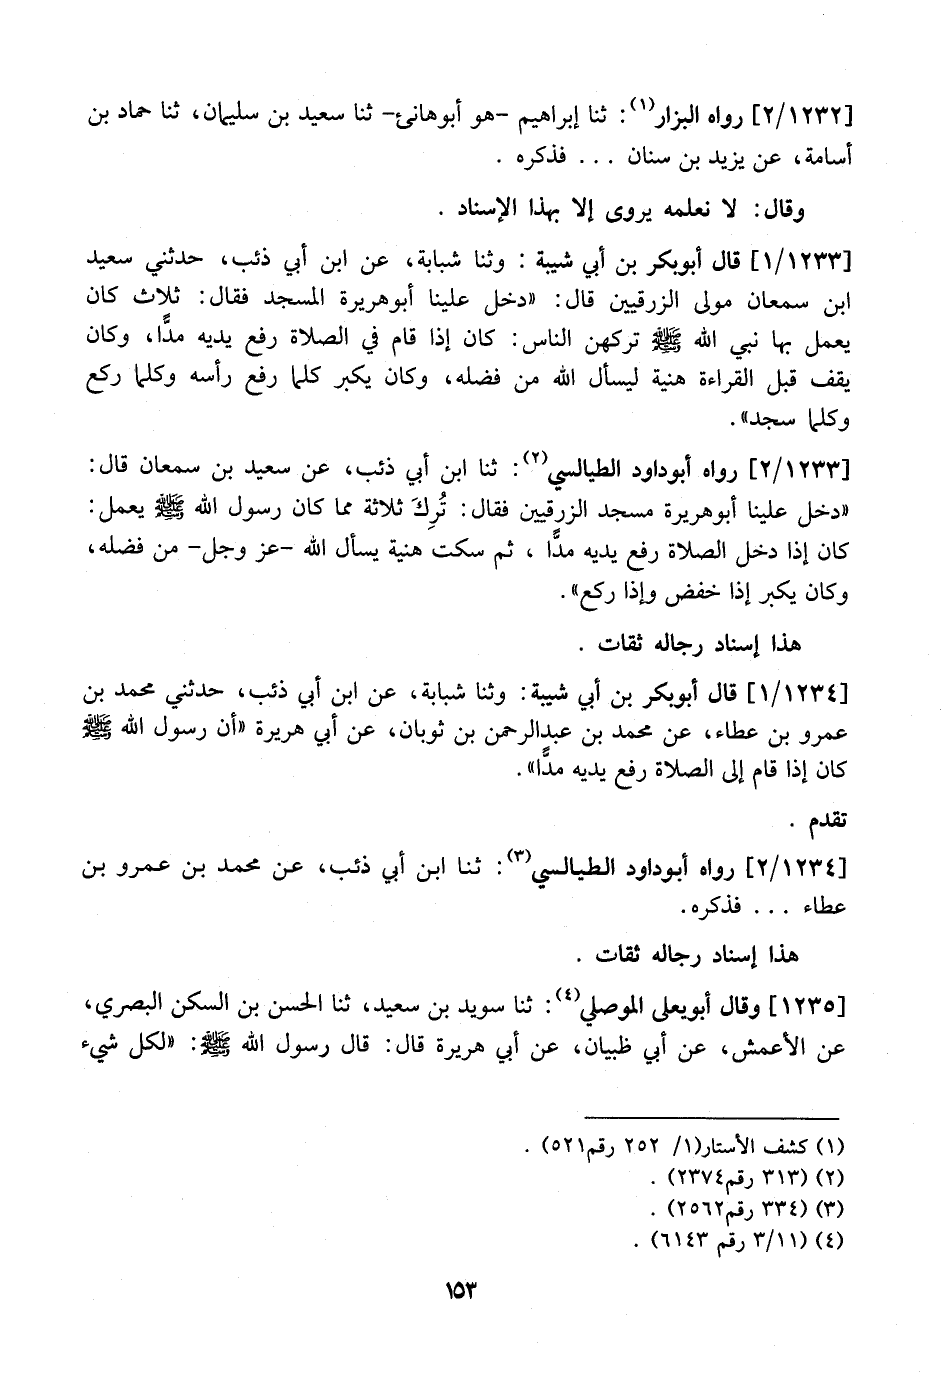 [٢/١٢٣٢] رواه البزار(١): ثنا إبراهيم -هو أبوهانئ- ثنا سعيد بن سليمان، ثنا حماد بن
أسامة، عن يزيد بن سنان ... فذكره .
وقال: لا نعلمه يروى إلا بهذا الإسناد .
[١/١٢٣٣] قال أبوبكر بن أبي شيبة : وثنا شبابة، عن ابن أبي ذئب، حدثني سعيد
ابن سمعان مولى الزرقيين قال: «دخل علينا أبوهريرة المسجد فقال: ثلاث كان
يعمل بها نبي الله ﷺ تركهن الناس: كان إذا قام في الصلاة رفع يديه مدًّا، وكان
يقف قبل القراءة هنية ليسأل الله من فضله، وكان يكبر كلما رفع رأسه وكلما ركع
وكلما سجد».
[٢/١٢٣٣] رواه أبوداود الطيالسي(٢): ثنا ابن أبي ذئب، عن سعيد بن سمعان قال:
«دخل علينا أبوهريرة مسجد الزرقيين فقال: تُرِكَ ثلاثة مما كان رسول الله ﷺ يعمل:
كان إذا دخل الصلاة رفع يديه مدًّا ، ثم سكت هنية يسأل الله -عز وجل- من فضله،
وكان يكبر إذا خفض وإذا ركع».
هذا إسناد رجاله ثقات .
[١/١٢٣٤] قال أبوبكر بن أبي شيبة: وثنا شبابة، عن ابن أبي ذئب، حدثني محمد بن
عمرو بن عطاء، عن محمد بن عبدالرحمن بن ثوبان، عن أبي هريرة «أن رسول الله ﷺ
كان إذا قام إلى الصلاة رفع يديه مدًّا».
تقدم .
[٢/١٢٣٤] رواه أبوداود الطيالسي(٣): ثنا ابن أبي ذئب، عن محمد بن عمرو بن
عطاء ... فذكره.
هذا إسناد رجاله ثقات .
[١٢٣٥] وقال أبويعلى الموصلي(٤): ثنا سويد بن سعيد، ثنا الحسن بن السكن البصري،
عن الأعمش، عن أبي ظبيان، عن أبي هريرة قال: قال رسول الله ﷺ: «لكل شيء
(١) كشف الأستار(١/ ٢٥٢ رقم٥٢١) .
(٢) (٣١٣ رقم٢٣٧٤) .
(٣) (٣٣٤ رقم٢٥٦٢) .
(٤) (٣/١١ رقم ٦١٤٣) .
١٥٣